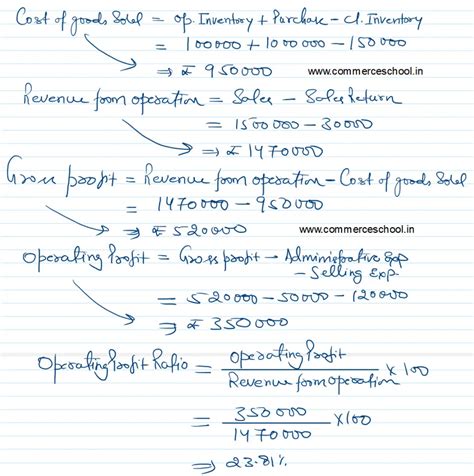 Cost of goods Sold = op. Inventory + Purchase - cl. Inventory
= 100000 + 1000000 - 150000
⇒ ₹ 950000 www.commerceschool.in
Revenue from operation = Sales - Sales Return
= 1500000 - 30000
⇒ ₹ 1470000
Gross profit = Revenue from operation - Cost of goods Sold
= 1470000 - 950000
⇒ ₹ 520000 www.commerceschool.in
Operating Profit = Gross profit - Administrative Exp
- Selling Exp.
= 520000 - 50000 - 120000
⇒ ₹ 350000
Operating Profit Ratio = Operating Profit / Revenue from operation × 100
= 350000 / 1470000 × 100
⇒ 23.81%